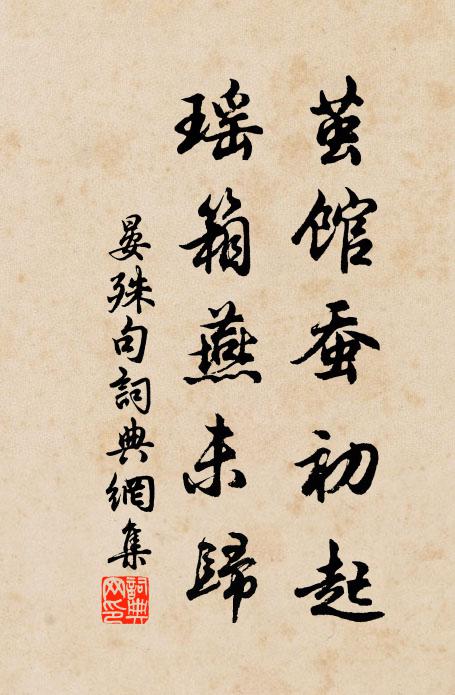 茧馆蚕初起
瑶箱燕未歸
晏殊句詞典網集
詞典网印